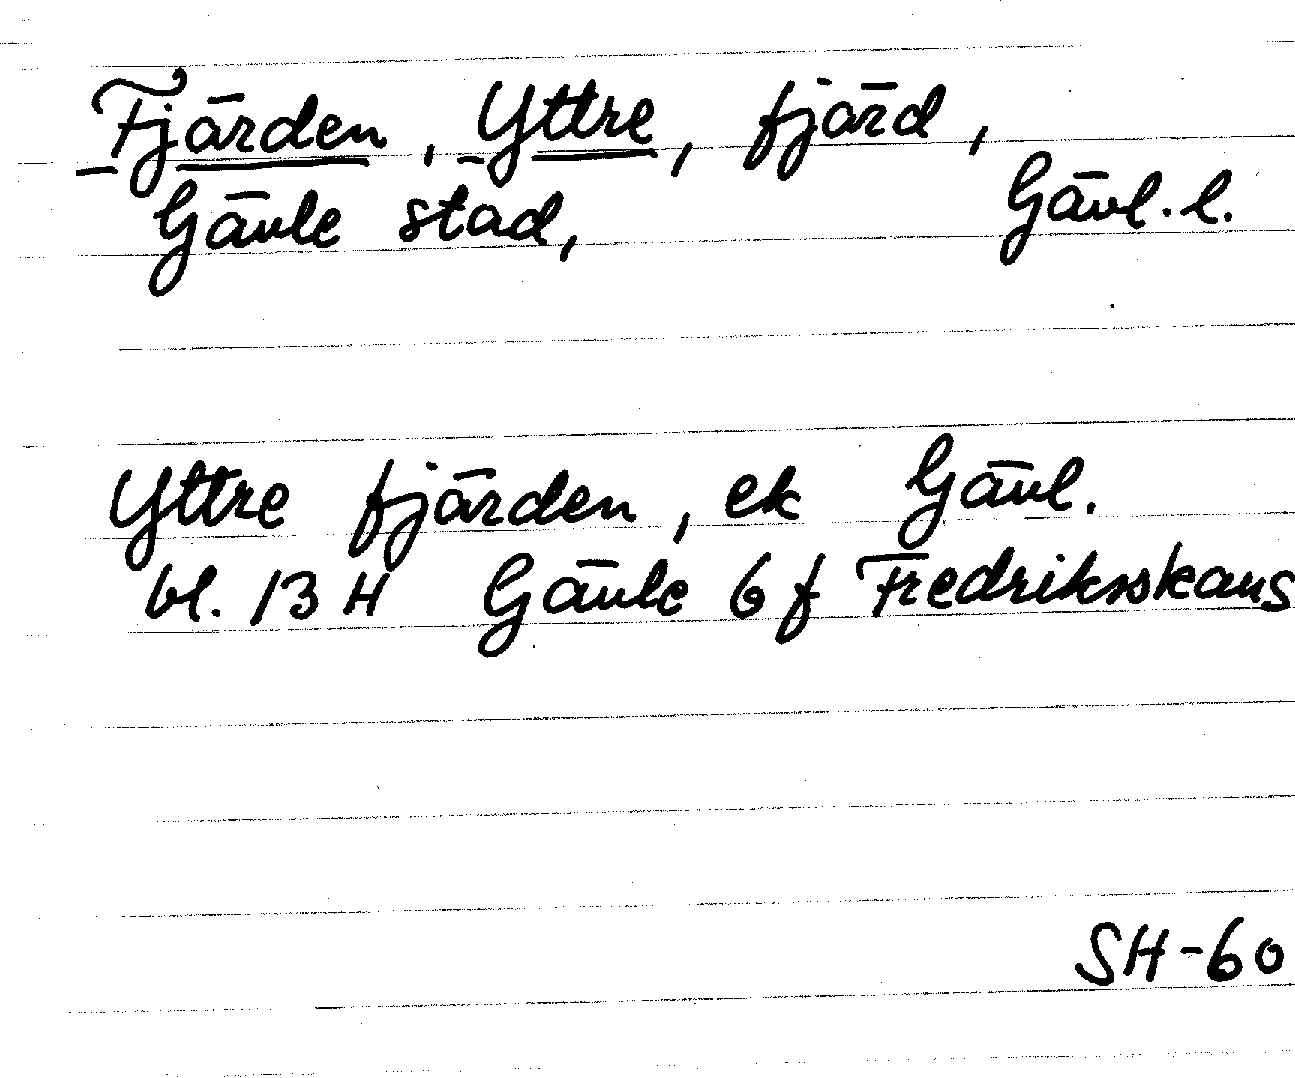 Fjärden, Yttre, fjärd,
Gävle stad, Gävl. l.
Yttre fjärden, ek Gävl.
bl. 13 H Gävle 6 f Fredriksskans
SH-60